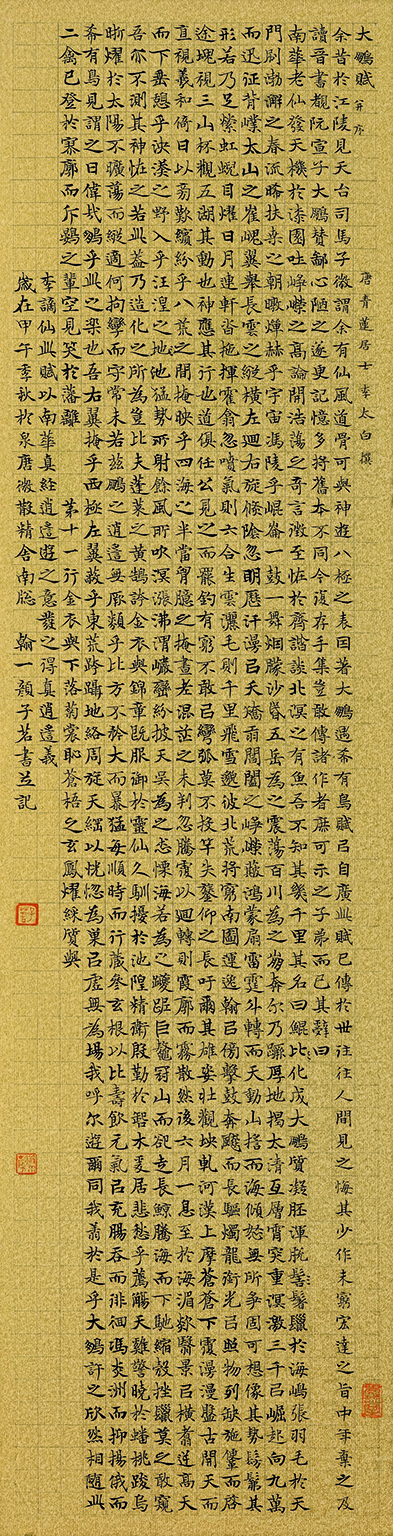 大鵬賦 并序 唐青蓮居士李太白撰
余昔於江陵見天台司馬子微謂余有仙風道骨可與神遊八極之表因著大鵬遇希有鳥賦㠯自廣此賦已傳於世往往人間見之悔其少作未窮宏達之旨中年棄之及
讀晉書覩阮宣子大鵬賛鄙心陋之遂更記憶多將舊本不同今復存手集豈敢傳諸作者庶可示之子弟而已其辭曰
南華老仙發天機於漆園吐崢嶸之高論開浩蕩之奇言徵至怪於齊諧談北溟之有魚吾不知其幾千里其名曰鯤比化成大鵬質凝胚渾脫鬐鬣於海嶋張羽毛於天
門刷渤澥之春流晞扶桑之朝暾燀赫乎宇宙馮陵乎崐崙一鼓一舞烟朦沙昬五岳為之震蕩百川為之崩奔尔乃蹶厚地揭太清亙層霄突重溟激三千㠯崛起向九萬
而迅征背嶪太山之崔嵬翼舉長雲之縱横左迴右旋倐陰忽明歷汗漫㠯夭矯羾閶闔之崢嶸簸鴻蒙扇雷霆斗轉而天動山揺而海傾怒無所爭固可想像其勢髣髴其
形若乃足縈虹蜺目燿日月連軒沓拖揮霍翕忽噴氣則六合生雲灑毛則千里飛雪邈彼北荒將窮南圖運逸翰㠯傍擊鼓奔飈而長驅燭龍銜光㠯照物列缺施鞭而啓
途塊視三山杯觀五湖其動也神應其行也道俱任公見之而罷釣有窮不敢㠯彎弧莫不投竿失鏃仰之長吁爾其雄姿壯觀坱軋河漢上摩蒼蒼下覆漫漫盤古開天而
直視羲和倚日以旁歎繽紛乎八荒之間掩映乎四海之半當胷臆之掩晝若混茫之未判忽騰覆以迴轉則霞廓而霧散然後六月一息至於海湄欻翳景㠯橫翥逆高天
而下垂憩乎泱漭之野入乎汪湟之池猛勢所射餘風所吹溟漲沸渭巖巒紛披天吴為之怵慄海若為之躨跜巨鼇冠山而卻走長鯨騰海而下馳縮殼挫鬣莫之敢窺
吾亦不測其神怪之若此蓋乃造化之所為豈比夫蓬萊之黄鵠誇金衣與錦章既服御於靈仙久馴擾於池隍精衛殷勤於銜木爰居悲愁乎薦觴天雞警曉於蟠桃踆烏
晰燿於太陽不曠蕩而縱適何拘攣而守常未若兹鵬之逍遥無厥類乎比方不矜大而暴猛每順時而行藏參玄根以比壽飲元氣㠯充腸吞而徘徊馮炎洲而抑揚俄而
希有鳥見謂之曰偉哉鵬乎此之樂也吾右翼掩乎西極左翼蔽乎東荒跨躡地絡周旋天綱以恍惚為巢㠯虛無為場我呼尔遊爾同我翥於是乎大鵬許之欣然相隨此
二禽已登於寥廓而斥鷃之輩空見笑於藩籬 第十一行金衣與下落菊裳恥蒼梧之玄鳳燿綵質與
李謫仙此賦以南華真經逍遥遊之意發之得真逍遥義
歲在甲午季秋於泉唐微散精舍南牕 翰一顏子茗書並記